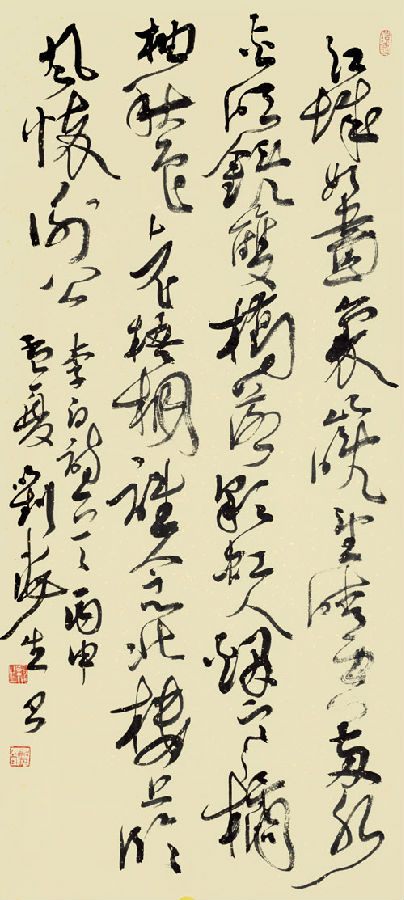 江城如畫裏山晚望晴空兩水
夾明鏡雙橋落彩虹人煙寒橘
柚秋色老梧桐誰念北樓上臨
風懷謝公
李白詩 丙申
孟夏劉海生书